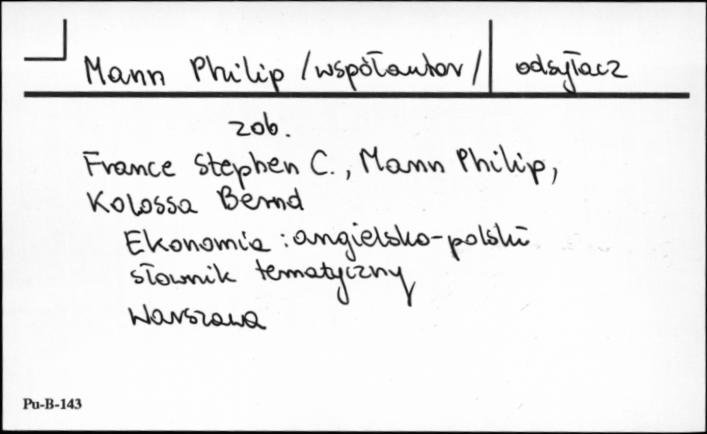 Mann Philip /współautor/ odsyłacz
zob.
France Stephen C., Mann Philip,
Kolossa Bernd
Ekonomia : angielsko-polski
słownik tematyczny
Warszawa
Pu-B-143